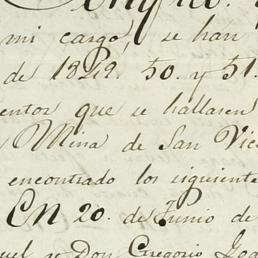 mi cargo, se han
de 1849. 50. y 51.
entos que se hallasen
Mina de San Vic
encontrado los siguiente
En 20. de Junio de
uel y Don Gregorio Goa